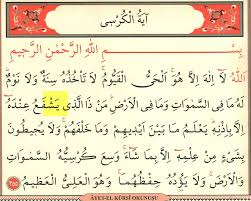 آيَةُ الْكُرْسِى
بِسْمِ اللهِ الرَّحْمٰنِ الرَّحِيمِ
اَللّٰهُ لَا اِلٰهَ اِلَّا هُوَ اَلْحَىُّ الْقَيُّومُ لَا تَاْخُذُهُ سِنَةٌ وَلَا نَوْمٌ
لَهُ مَا فِى السَّمٰوَاتِ وَمَا فِى الْاَرْضِ مَنْ ذَا الَّذِى يَشْفَعُ عِنْدَهُ
اِلَّا بِاِذْنِهِ يَعْلَمُ مَا بَيْنَ اَيْدِيهِمْ وَمَا خَلْفَهُمْ وَلَا يُحِيطُونَ
بِشَىْءٍ مِنْ عِلْمِهِ اِلَّا بِمَا شَاءَ وَسِعَ كُرْسِيُّهُ السَّمٰوَاتِ
وَالْاَرْضَ وَلَا يَؤُدُهُ حِفْظُهُمَا وَهُوَ الْعَلِىُّ الْعَظِيمُ
٢٥٥
ÂYET-EL KÜRSİ OKUNUŞU